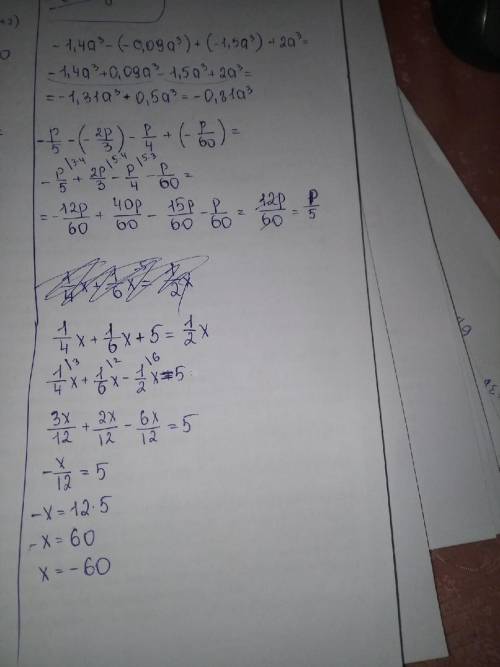 -1,4a³-(-0,09a³)+(-1,5a³)+2a³=
-1,4a³+0,09a³-1,5a³+2a³=
=-1,31a³+0,5a³=-0,81a³
-p/5-(-2p/3)-p/4+(-p/60)=
-p/5\3·4+2p/3\5·4-p/4\5·3-p/60=
=-12p/60+40p/60-15p/60-p/60=12p/60=p/5
1/4x+1/6x+5=1/2x
1/4\3x+1/6\2x-1/2\6x=5
3x/12+2x/12-6x/12=5
-x/12=5
-x=12·5
-x=60
x=-60